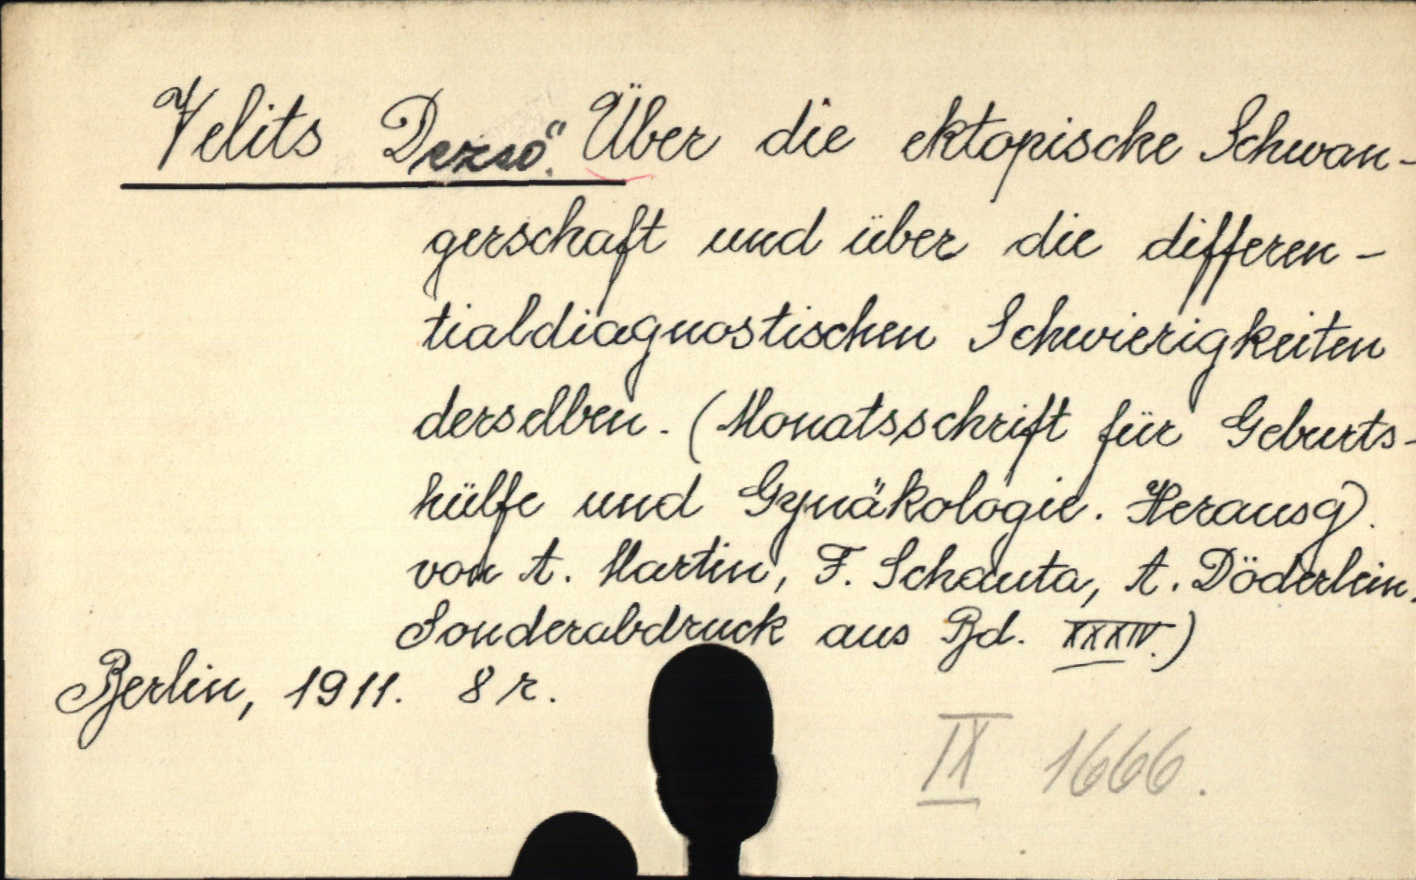 Velits Dezső. Über die ektopische Schwan-
gerschaft und über die differen-
tialdiagnostischen Schwierigkeiten
derselben. (Monatsschrift für Geburts-
hülfe und Gynäkologie. Herausg.
von A. Martin, F. Schauta, A. Döderlein.
Sonderabdruck aus Bd. XXXIV.)
Berlin, 1911. 8 r.
IX 1666.